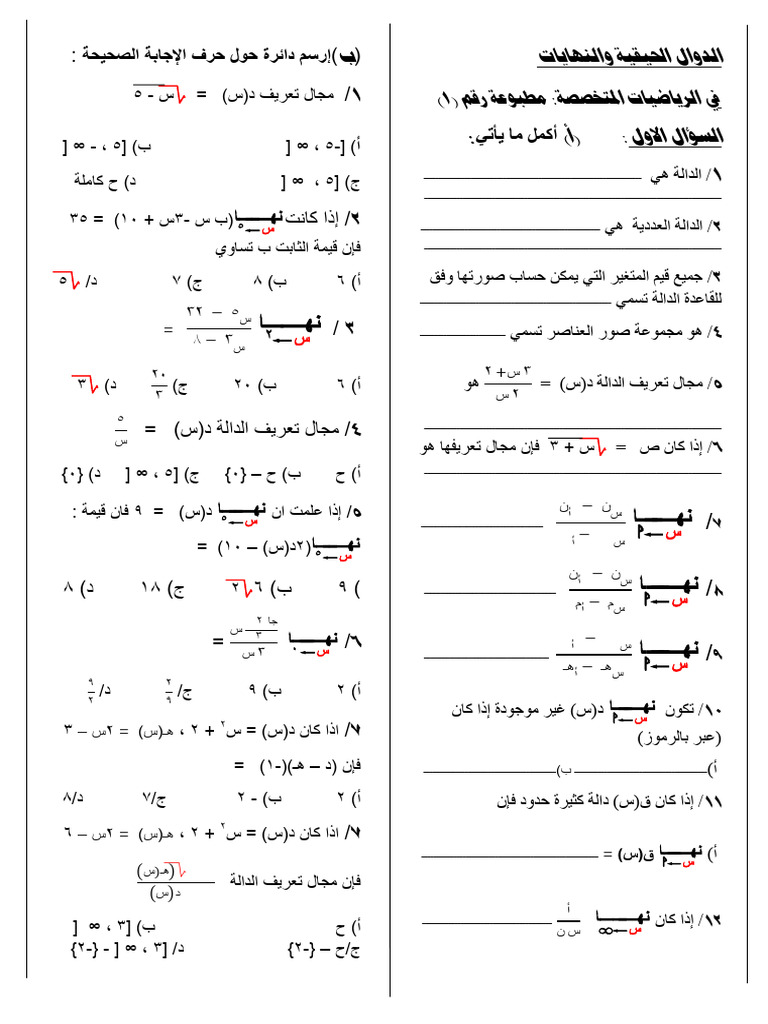 الدوال الحقيقية والنهايات
في الرياضيات المتخصصة: مطبوعة رقم (١)
السؤال الاول : (أ) أكمل ما يأتي:
١/ الدالة هي ــــــــــــــــ
٢/ الدالة العددية هي ــــــــــــــــ
٣/ جميع قيم المتغير التي يمكن حساب صورتها وفق
للقاعدة الدالة تسمي ــــــــــــــــ
٤/ هو مجموعة صور العناصر تسمي ــــــــــــــــ
٥/ مجال تعريف الدالة د(س) = (٣س+٢)/(٢س) هو
٦/ إذا كان ص = √(س + ٣) فإن مجال تعريفها هو
٧/ نهــــا س←م (س^ن – أ^ن)/(س – أ) ــــــــــــــــ
٨/ نهــــا س←م (س^ن – أ^ن)/(س^م – أ^م) ــــــــــــــــ
٩/ نهــــا س←م (س – أ)/(س^هـ – أ^هـ) ــــــــــــــــ
١٠/ تكون نهــــا س←م د(س) غير موجودة إذا كان
(عبر بالرموز)
أ) ــــــــــــــــ ب) ــــــــــــــــ
١١/ إذا كان ق(س) دالة كثيرة حدود فإن
أ) نهــــا س←م ق(س) = ــــــــــــــــ
١٢/ إذا كان نهــــا س←∞ أ/س^ن ــــــــــــــــ
(ب)إرسم دائرة حول حرف الإجابة الصحيحة :
١/ مجال تعريف د(س) = √(س - ٥)
أ) [-٥ ، ∞ [ ب) [٥ ، - ∞ [
ج) [٥ ، ∞ [ د) ح كاملة
٢/ إذا كانت نهــــا س←٥ (ب س -٣س + ١٠) = ٣٥
فإن قيمة الثابت ب تساوي
أ) ٦ ب) ٨ ج) ٧ د/ √٥
٣ / نهــــا س←٢ (س^٥ – ٣٢)/(س^٣ – ٨) =
أ) ٦ ب) ٢٠ ج) ٢٠/٣ د) √٣
٤/ مجال تعريف الدالة د(س) = ٥/س
أ) ح ب) ح – {٠} ج) [٥ ، ∞ [ د) {٠}
٥/ إذا علمت ان نهــــا س←٥ د(س) = ٩ فان قيمة :
نهــــا س←٥ (٢د(س) – ١٠) =
) ٩ ب) ٦√٢ ج) ١٨ د) ٨
٦/ نهــــا س←٠ (جا ٢/٣ س)/(٣ س) =
أ) ٢ ب) ٩ ج/ ٢/٩ د/ ٩/٢
٧/ اذا كان د(س) = س^٢ + ٢ ، هـ(س) = ٢س – ٣
فإن (د – هـ)(-١) =
أ) ٢ ب) - ٢ ج/٧ د/٨
٧/ اذا كان د(س) = س^٢ + ٢ ، هـ(س) = ٢س – ٦
فإن مجال تعريف الدالة √(هـ(س))/د(س)
أ) ح ب) [٣ ، ∞ [
ج/ح – {-٢} د/ [٣ ، ∞ [ - {-٢}